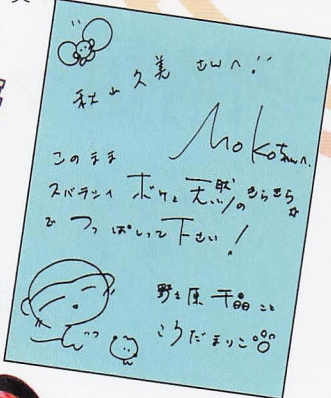 秋山久美 さんへ!!
Mokoちゃんへ。
このまま
スバラシイ ボケと天然のきらきら☆
で つっぱしって下さい!
野々原千晶こと
こうだまりこ